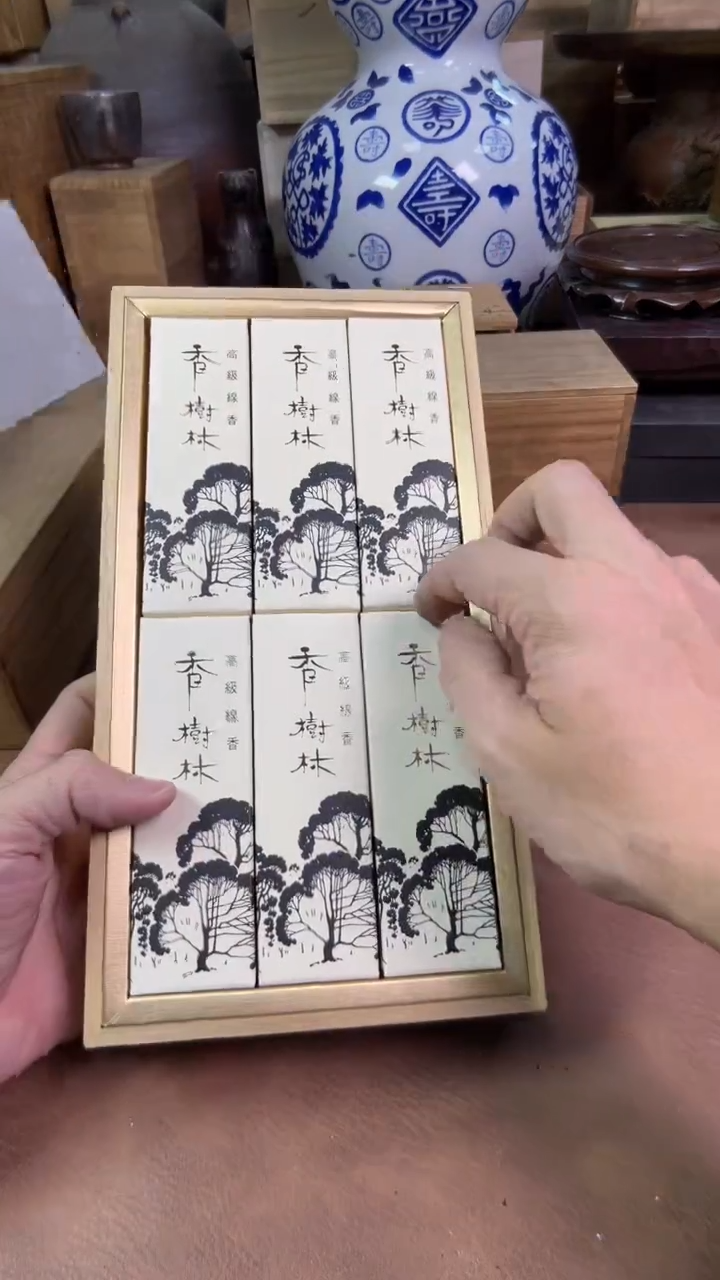 壽
壽
壽
壽
壽
高級線香
香樹林
高級線香
香樹林
高級線香
香樹林
高級線香
香樹林
高級線香
香樹林
香
香樹林